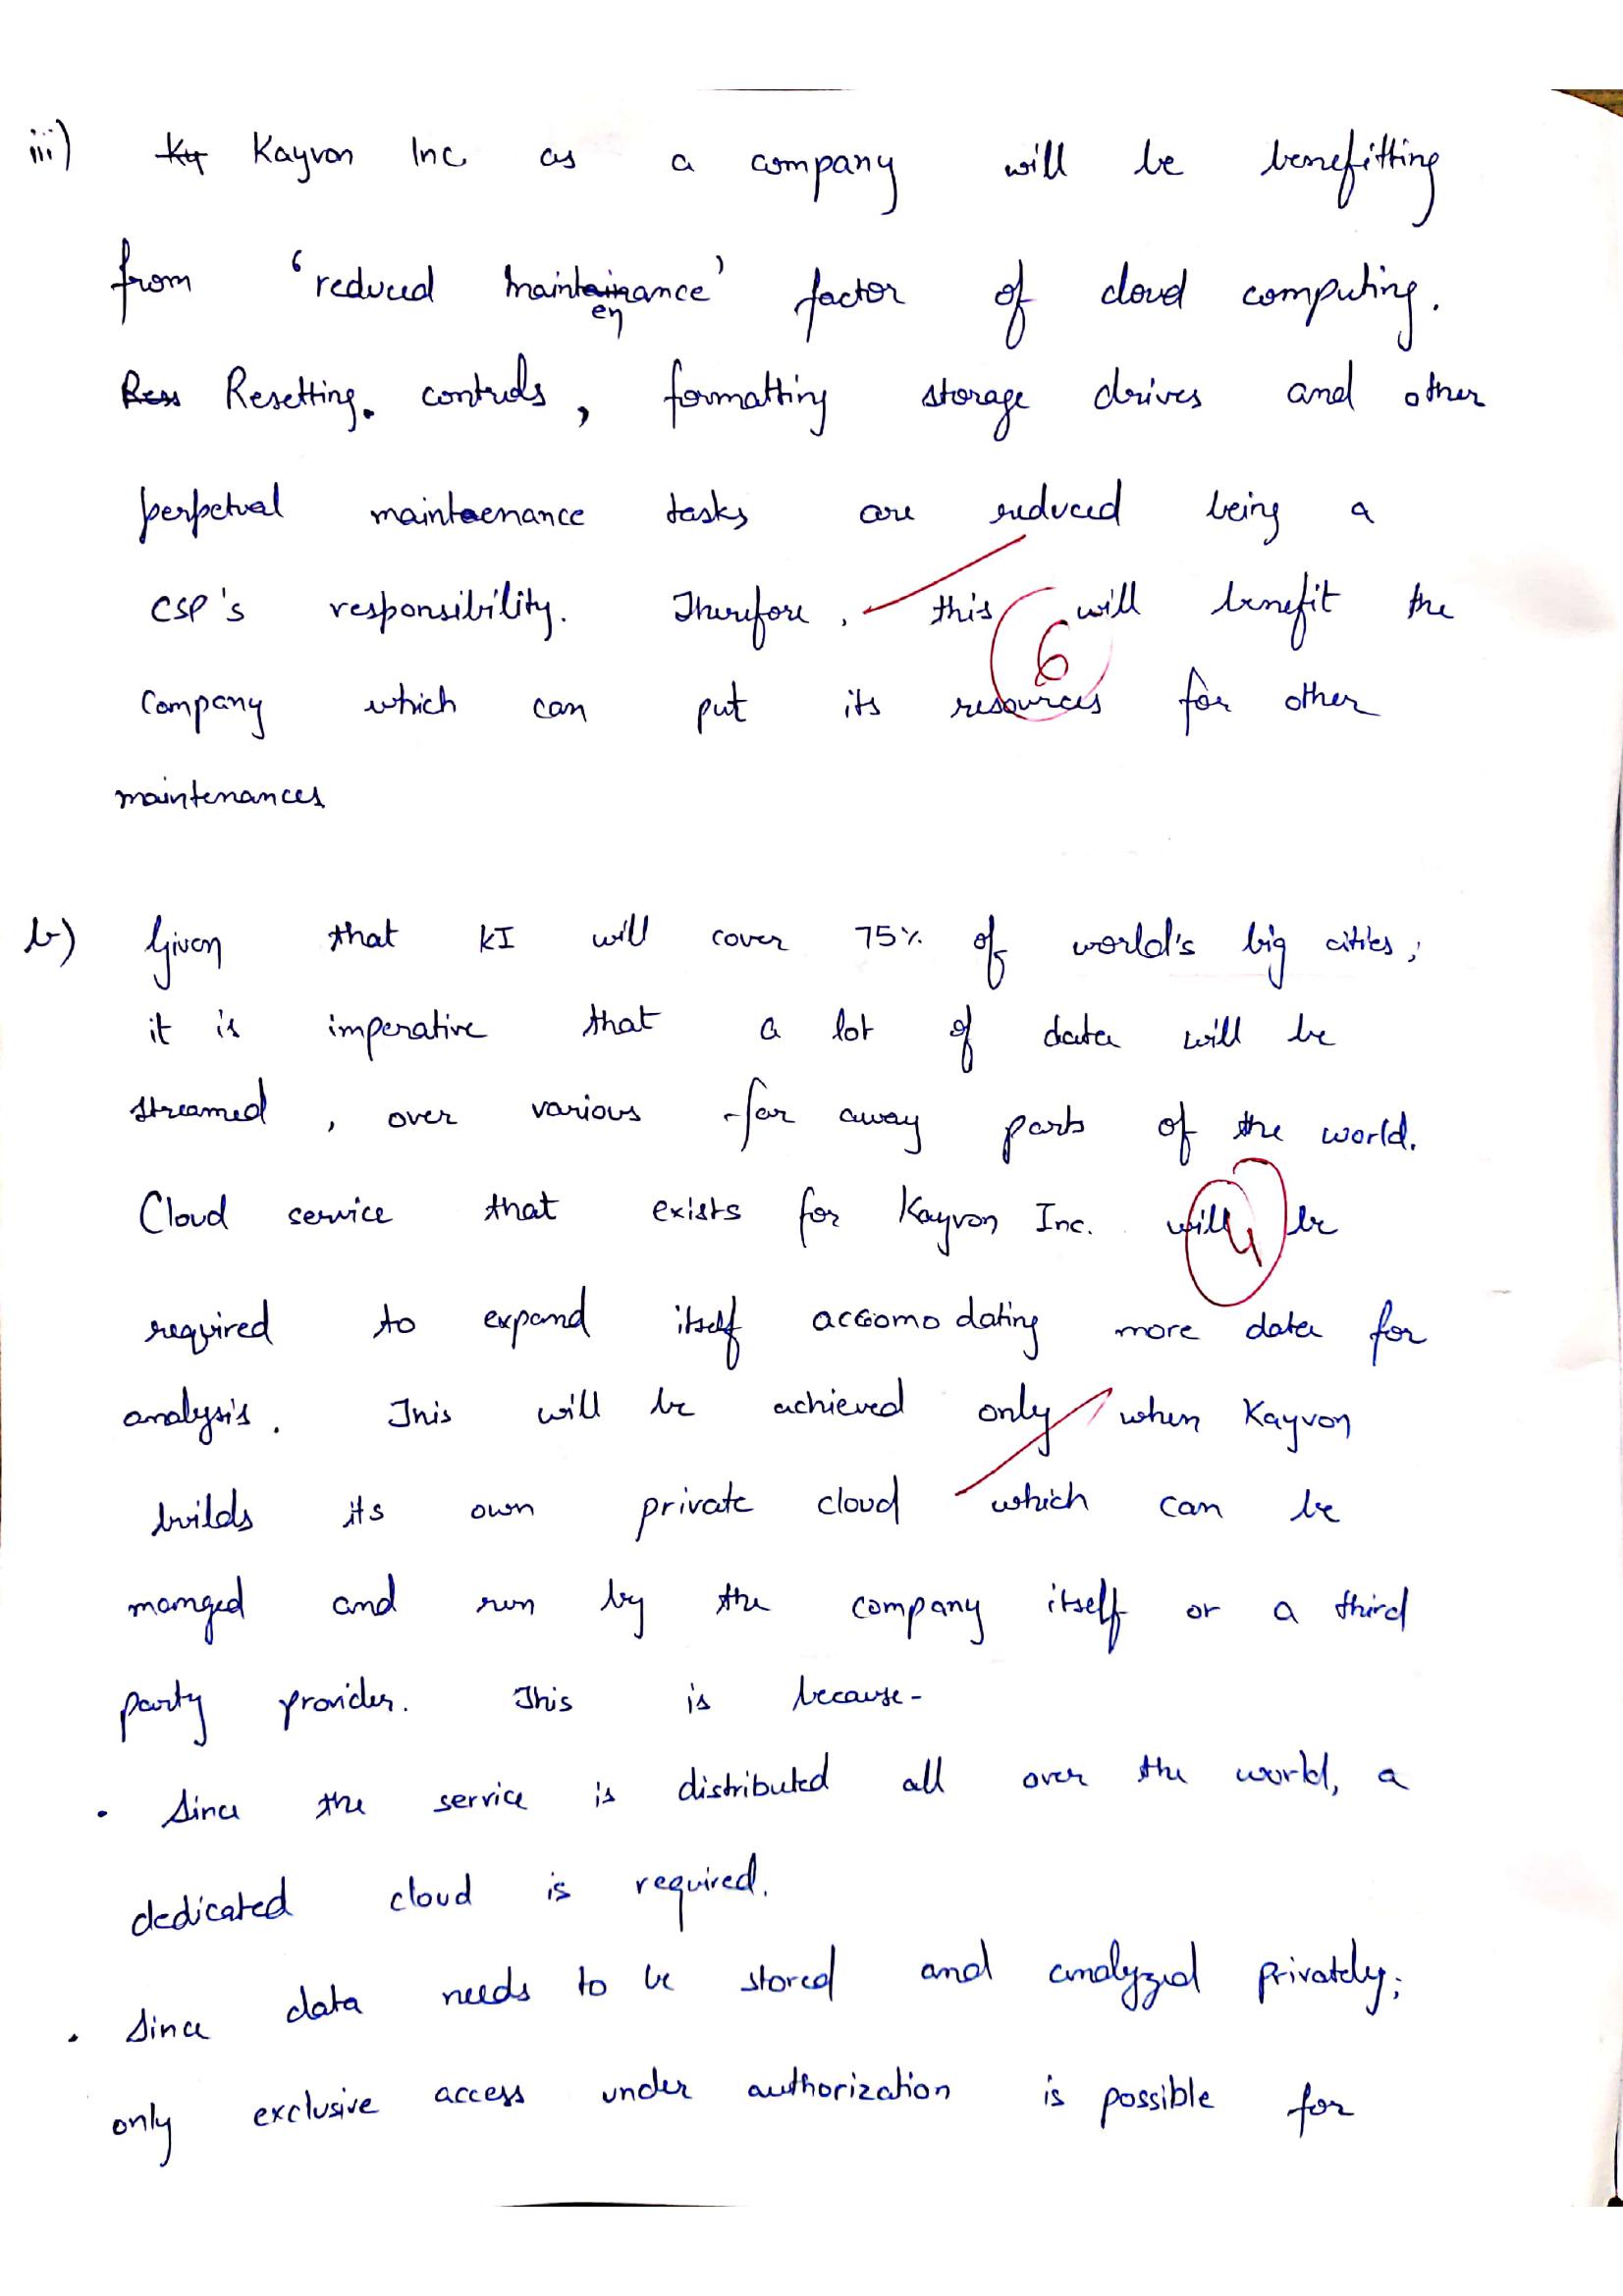 iii) Ky Kayvon Inc as a company will be benefitting
from 'reduced maintenance' factor of cloud computing.
Ress Resetting. controls, formatting storage drives and other
perpetual maintaenance tasks are reduced being a
CSP's responsibility. Therefore, this will benefit the
6
Company which can put its resources for other
maintenances
b) Given that KI will cover 75% of world's big cities;
it is imperative that a lot of data will be
streamed, over various far away parts of the world.
Cloud service that exists for Kayvon Inc. will be
4
required to expand itself accomodating more data for
analysis. This will be achieved only when Kayvon
builds its own private cloud which can be
manged and run by the company itself or a third
party provider. This is because-
• Since the service is distributed all over the world, a
dedicated cloud is required.
• Since data needs to be stored and analyzed privately;
only exclusive access under authorization is possible for